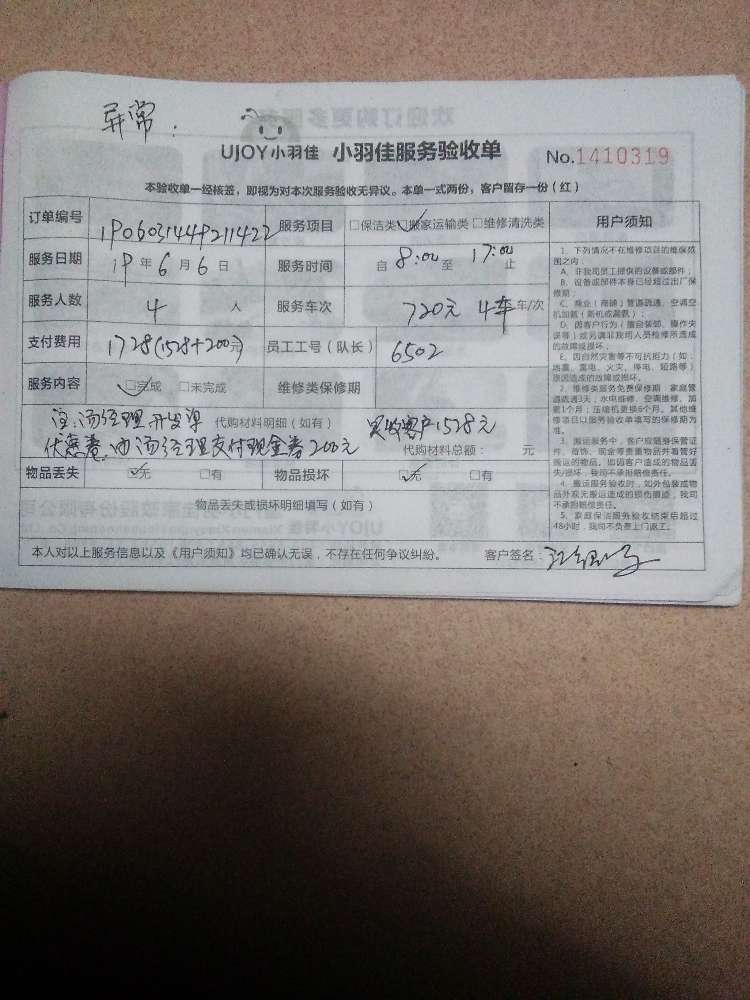 异常：
UJOY小羽佳 小羽佳服务验收单 No.1410319
本验收单一经核签，即视为对本次服务验收无异议。本单一式两份，客户留存一份（红）
订单编号 1P0603144P211422 服务项目 □保洁类 ☑搬家运输类 □维修清洗类 用户须知
服务日期 19年6月6日 服务时间 自8:00至17:00止
服务人数 4人 服务车次 720元 4车 车/次
支付费用 1728(1528+200)元 员工工号（队长） 6502
服务内容 ☑完成 □未完成 维修类保修期
注:汤经理开发票 代购材料明细（如有） 实收客户1528元
优惠券,由汤经理支付现金券200元 代购材料总额： 元
物品丢失 ☑无 □有 物品损坏 ☑无 □有
物品丢失或损坏明细填写（如有）
本人对以上服务信息以及《用户须知》均已确认无误，不存在任何争议纠纷。 客户签名：
1、下列情况不在维修项目的维保范
围之内：
A、非我司员工提供的设备或部件；
B、设备或部件本身已经超过出厂保
修期；
C、商业（商铺）管道疏通、空调空
机加氟（新机或漏氟）；
D、因客户行为（擅自装卸、操作失
误等）或另请非我司人员检修所造成
的故障或损坏；
E、因自然灾害等不可抗拒力（如：
地震、雷电、火灾、停电、短路等）
原因造成的故障或损坏。
2、维修类服务免费保修期：家庭管
道疏通3天；水电维修、空调维修、加
氟1个月；压缩机更换6个月。其他维
修项目以服务验收单填写的保修期为
准。
3、搬运服务中，客户应随身保管证
件、首饰、现金等贵重物品并看管好
搬运的物品。如因客户造成的物品丢
失/损坏，我司不承担赔偿责任。
4、搬运服务验收时，如外包装或物
品外观无搬运造成的损伤痕迹，我司
不承担赔偿责任。
5、家庭保洁服务验收结束后超过
48小时，我司不负责上门返工。